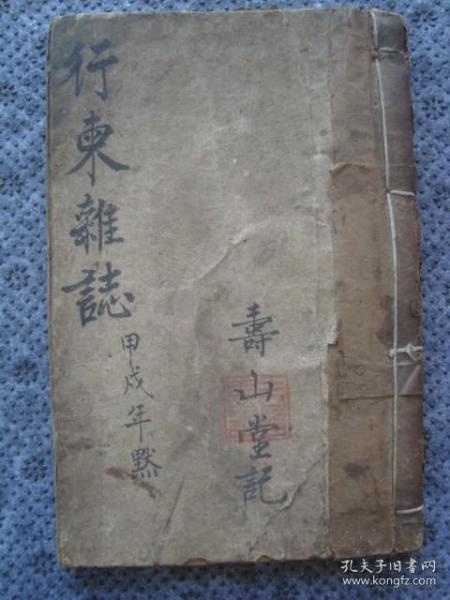 行柬雜誌
甲戍年黙
壽山堂記
孔夫子旧书网
www.kongfz.com